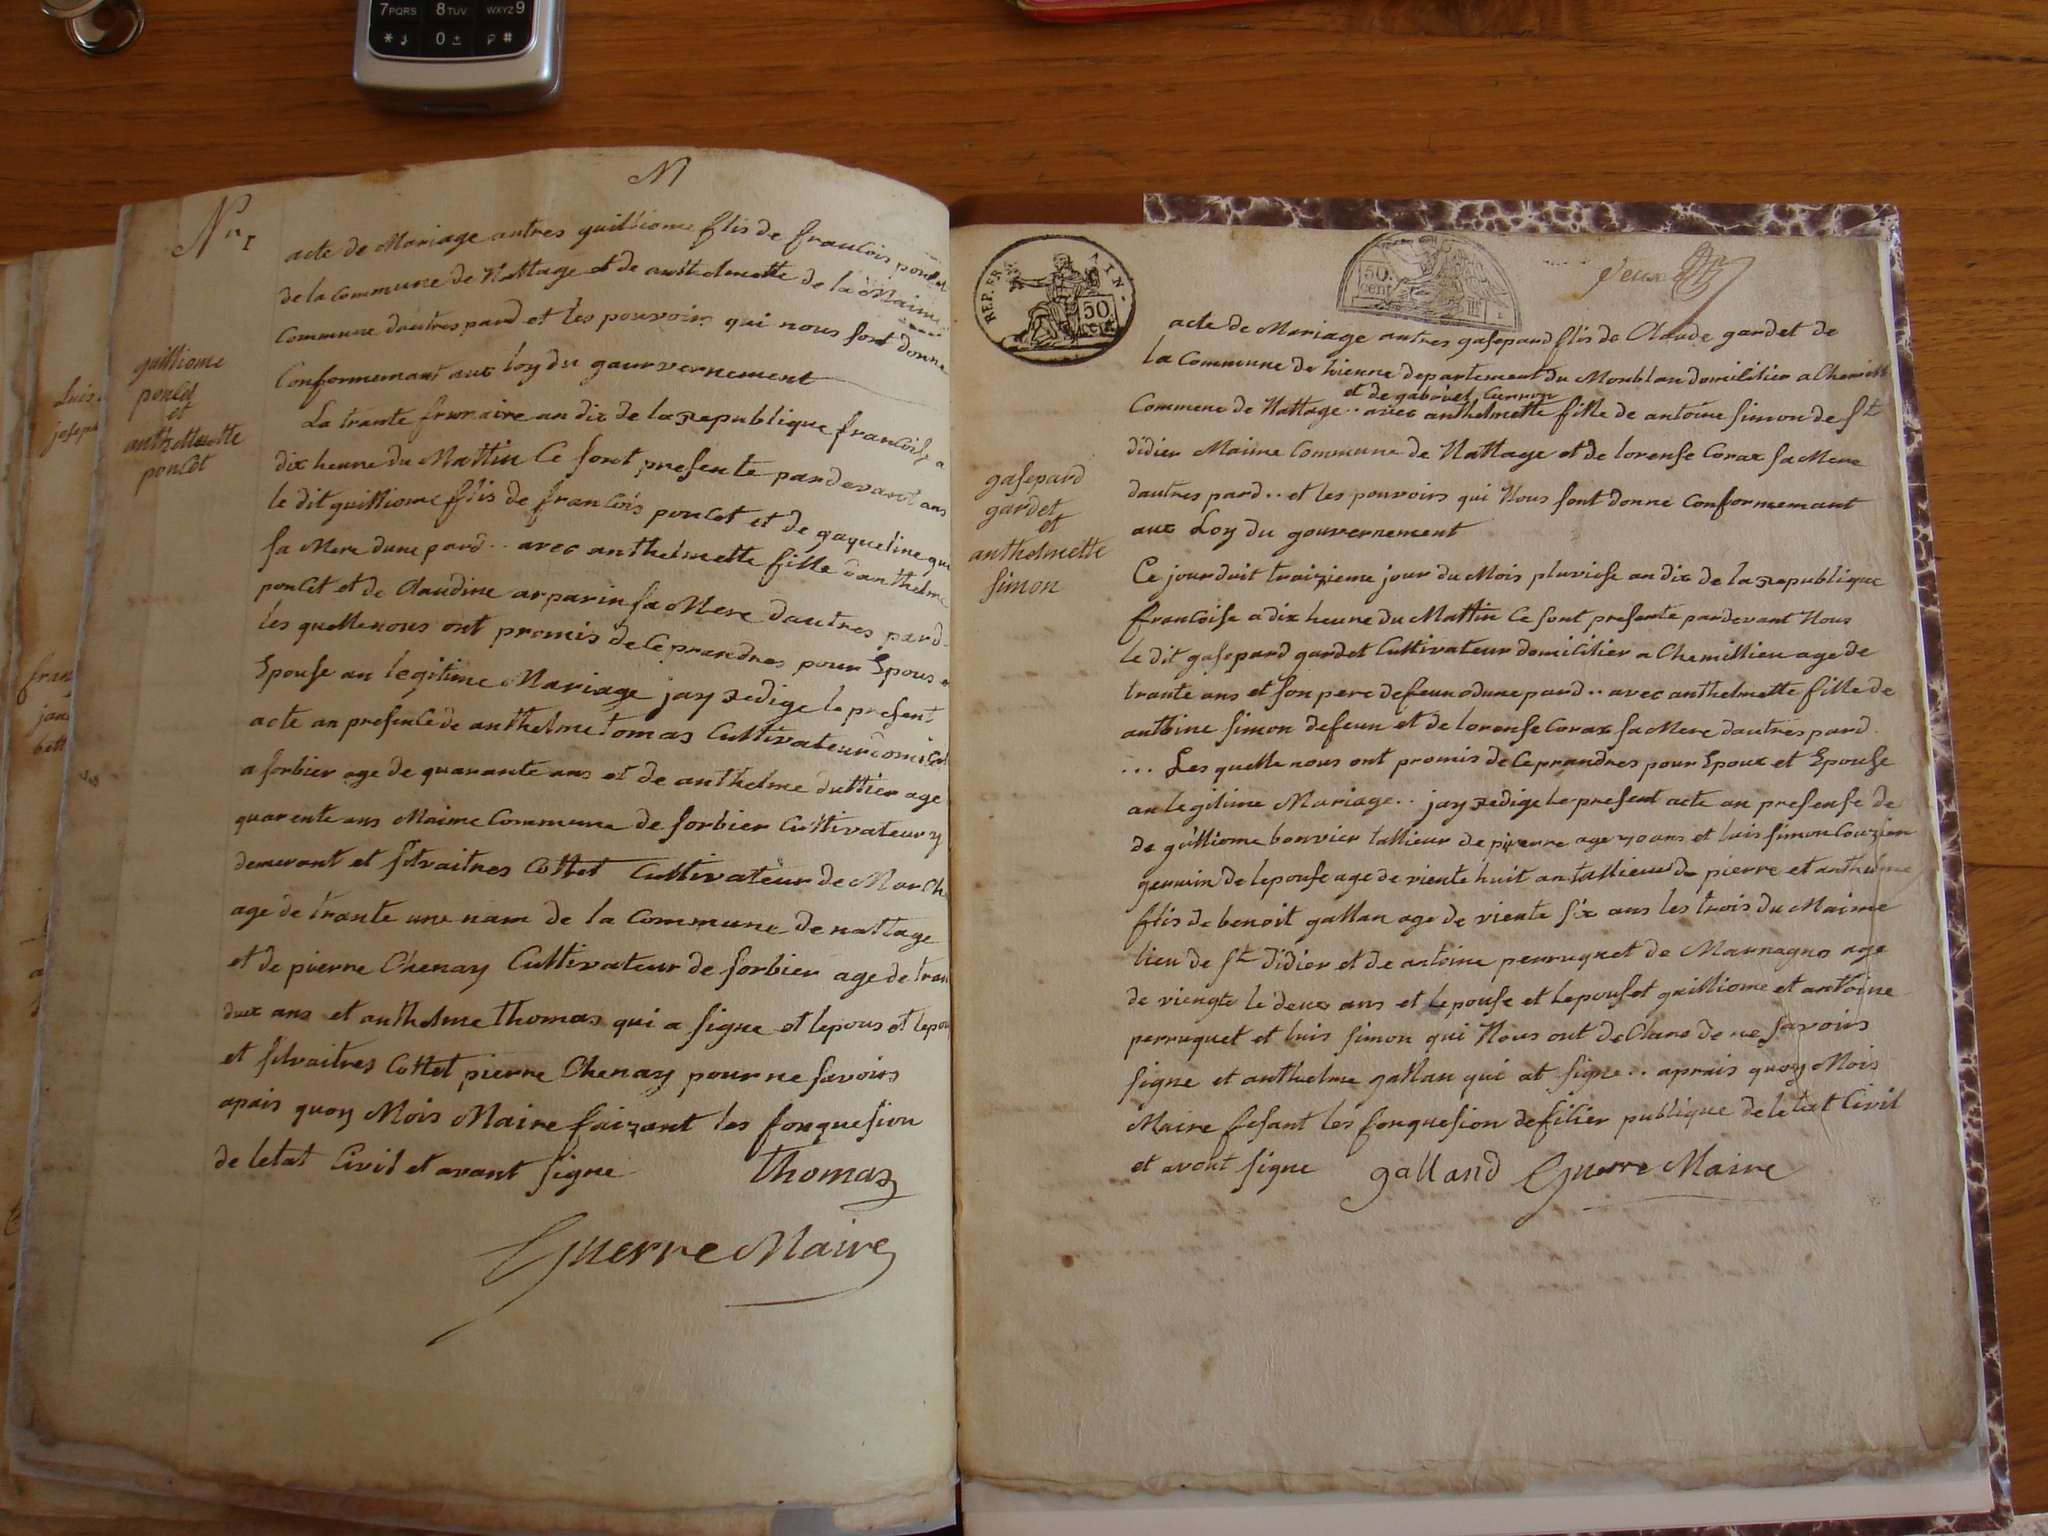 7PQRS 8TUV WXYZ9
* 0 #
M
Nr 1
acte de Mariage autres guilliome flis de francois poncet
de la commune de Nattage et de anthelmette de la Maime
Commune dautres pard et les pouvoirs qui nous sont donne
Conformemant aux loy du gaurvernement
La trante frumaire an dix de la Republique francoise a
dix heure du Mattin Ce sont presente pardevant
le dit guilliome flis de francois poncet et de gaqueline
sa Mere dune pard .. avec anthelmette fille danthelme
poncet et de Claudine arparin sa Mere dautres pard
les quelle nous ont promis de Ceprandres pour Epous
Epouse an legitime Mariage jay Redige le present
acte an presence de anthelme tomas Cultivateur
a sorbier age de quarante ans et de anthelme duttier age
quarente ans Maime Commune de sorbier Cultivateur y
demeurant et silvaitres Cottet Cultivateur de
age de trante une nam de la Commune de nattage
et de pierre Chenay Cultivateur de sorbier age de
dux ans et anthelme thomas qui a signe et lepous et
et silvaitres Cottet pierre Chenay pour ne savoirs
apais quoy Mois Maire faizant les fonquesion
de letat Civil et avant signe Thomas
Guerre Maire
guilliome
poncet
et
anthelmette
poncet
Luis
josep
fran
jan
bett
REP. FRA. AIN.
50
cent
50.
cent
deux
acte de Mariage autres gasepard flis de Claude gardet de
la Commune de hienne departement du Monblan domilicier a
et de gabriel Curron
Commene de Nattage .. avec anthelmette fille de antoine simon de St
didier Maime Commune de Nattage et de lorense Corax sa Mere
dautres pard .. et les pouvoirs qui Nous sont donne Conformemant
aux Loy du gouvernement
Ce jourduit traizieme jour du Mois pluviose an dix de la Republique
francoise a dix heure du Mattin Ce sont presente pardevant Nous
Le dit gasepard gardet Cultivateur domicilier a Chemillieu age de
trante ans et son pere defeun dune pard .. avec anthelmette fille de
antoine simon defeun et de lorense Corax sa Mere dautres pard
... Les quelle nous ont promis de Ceprandres pour Epoux et Epouse
an legitime Mariage .. jay Redige le present acte an presense de
de guilliome bonvier tallieur de pierre age 40 ans et luis simon Couzien
germin de lepouse age de viente huit an tallieur de pierre et anthelme
flis de benoit gallan age de viente six ans les trois du Maime
lieu de St didier et de antoine perruquet de Marnagno age
de viengte le deux ans et lepouse et lepous et guilliome et antoine
perruquet et luis simon qui Nous ont de Clare de ne savoirs
signe et anthelme gallan qui at signe .. aprais quoy Mois
Maire fesant les fonquesion defisier publique de letat Civil
et avont signe galland Guerre Maire
gasepard
gardet
et
anthelmette
simon